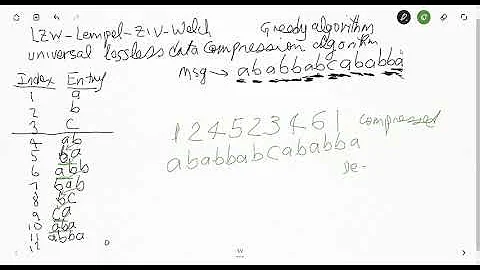 LZW-Lempel-Ziv-Welch Greedy algorithm
universal lossless data compression algorithm
msg → ababbabcababba
Index Entry
1 a
2 b
3 c
4 ab
5 ba
6 abb
7 bab
8 bc
9 ca
10 aba
11 abba
12
1 2 4 5 2 3 4 6 1 compressed
ababbabcababba
De-
W